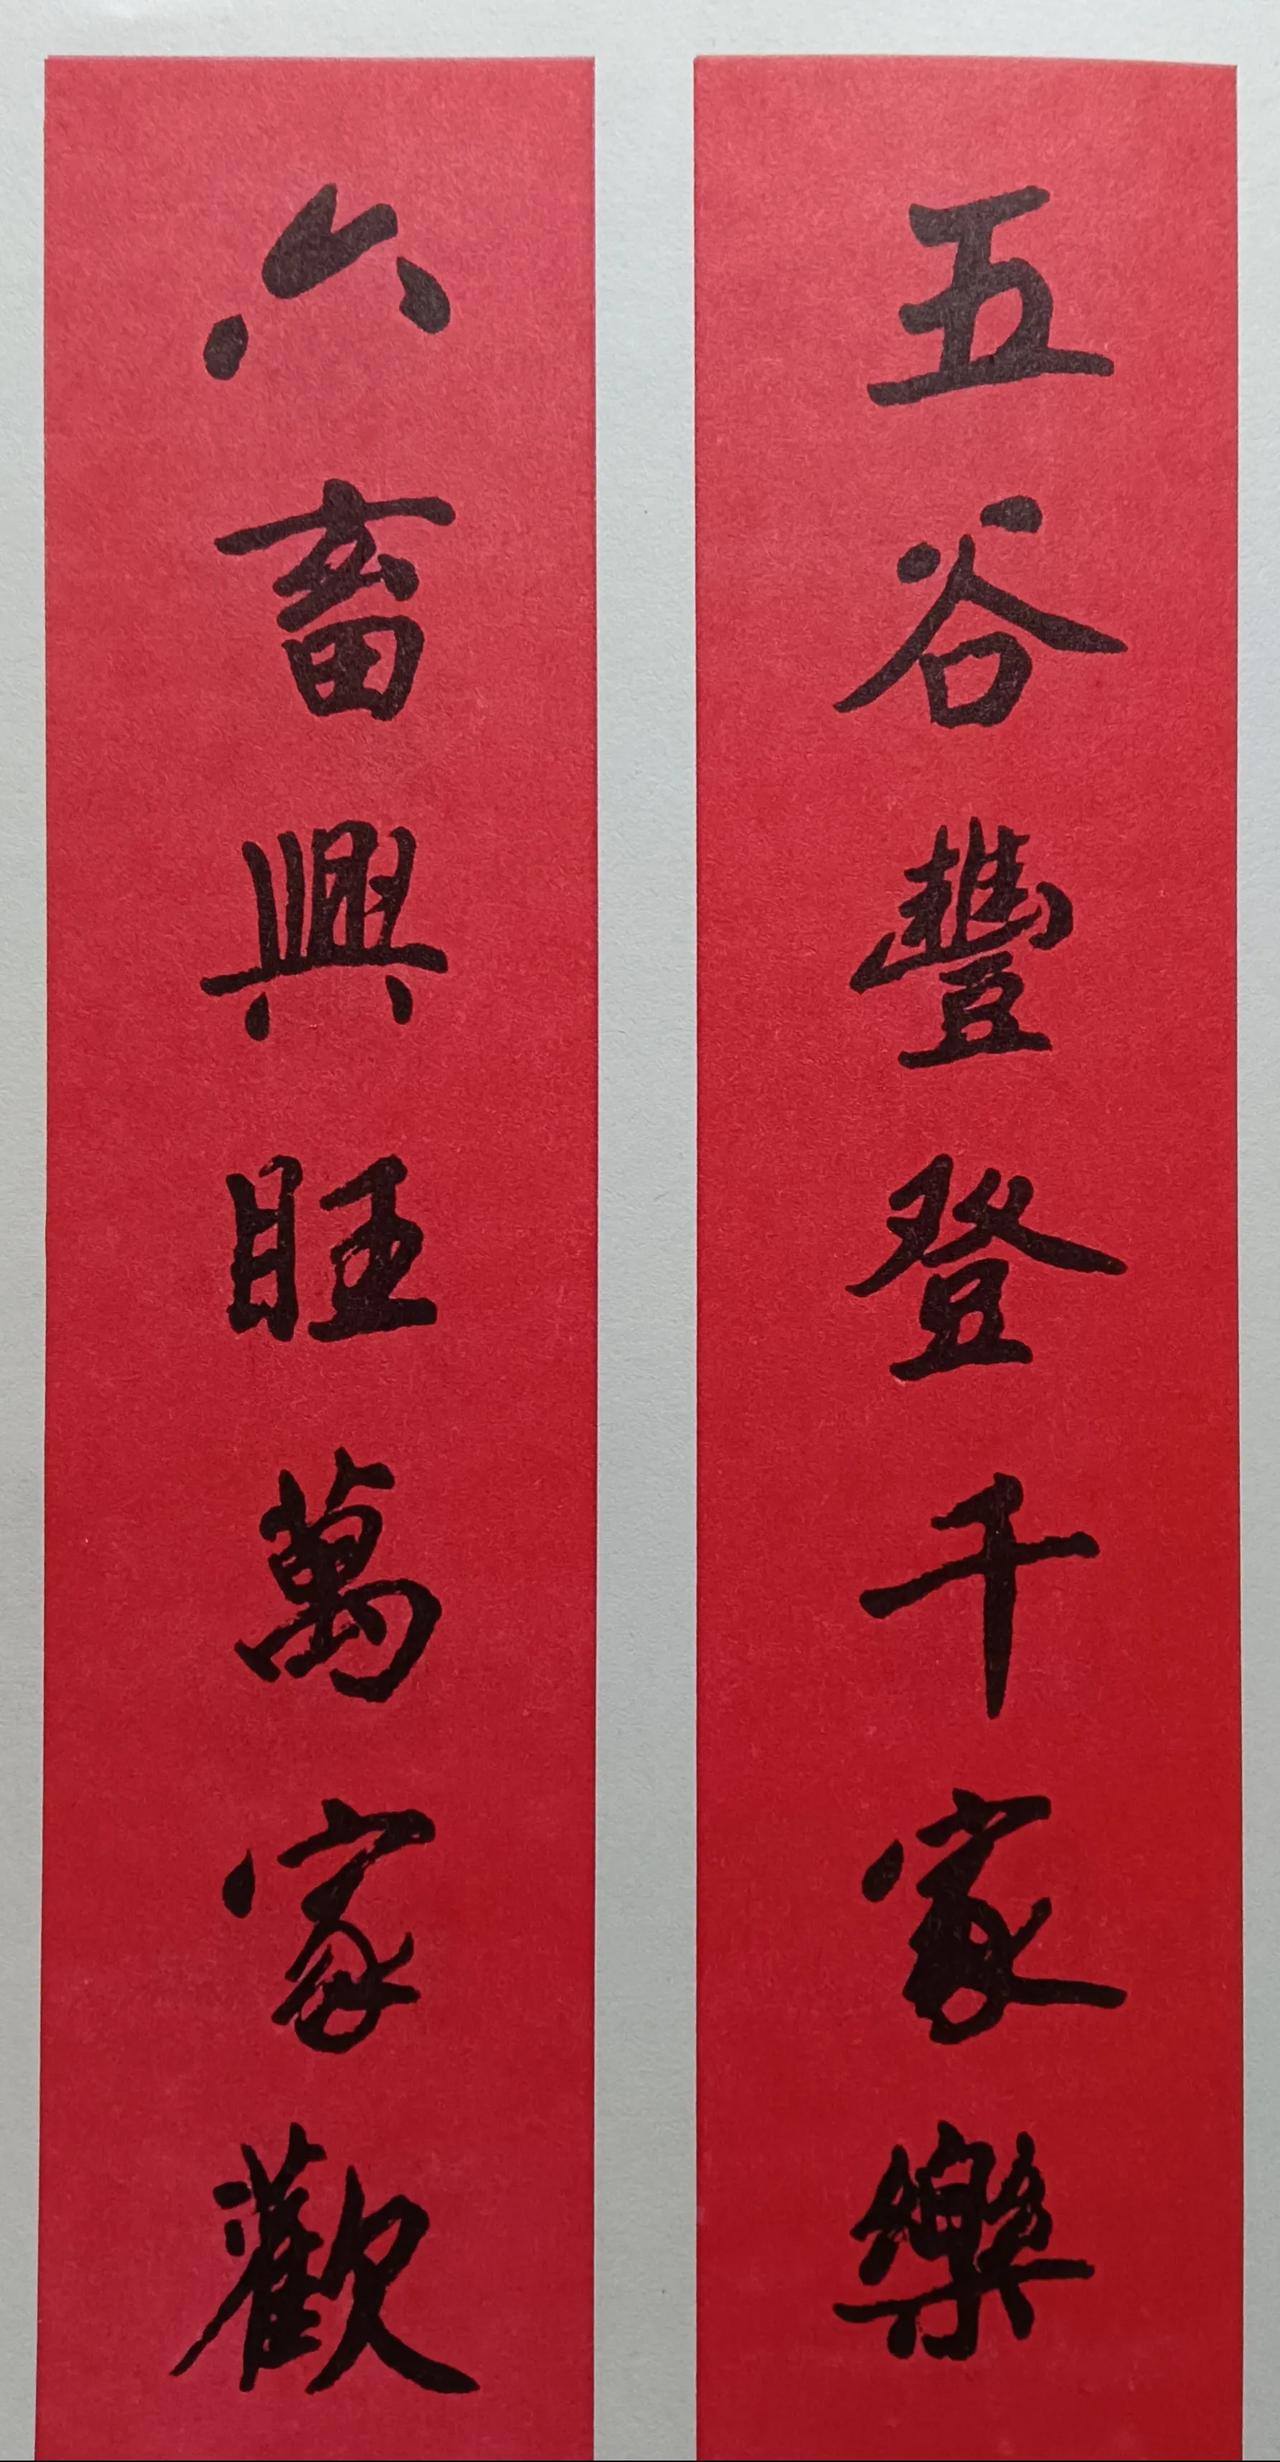 五谷豐登千家樂
六畜興旺萬家歡